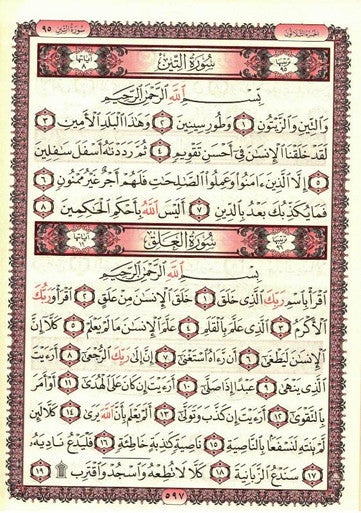 سُورَةُ التِّينِ ٩٥
الجُزْءُ الثَّلَاثُونَ
آيَاتُهَا ٨ سُورَةُ التِّينِ تَرْتِيبُهَا ٩٥
بِسْمِ اللَّهِ الرَّحْمَٰنِ الرَّحِيمِ
وَالتِّينِ وَالزَّيْتُونِ ١ وَطُورِ سِينِينَ ٢ وَهَٰذَا الْبَلَدِ الْأَمِينِ ٣
لَقَدْ خَلَقْنَا الْإِنسَٰنَ فِي أَحْسَنِ تَقْوِيمٍ ٤ ثُمَّ رَدَدْنَٰهُ أَسْفَلَ سَٰفِلِينَ
٥ إِلَّا الَّذِينَ ءَامَنُوا وَعَمِلُوا الصَّٰلِحَٰتِ فَلَهُمْ أَجْرٌ غَيْرُ مَمْنُونٍ
٦ فَمَا يُكَذِّبُكَ بَعْدُ بِالدِّينِ ٧ أَلَيْسَ اللَّهُ بِأَحْكَمِ الْحَٰكِمِينَ ٨
سُورَةُ العَلَقِ
بِسْمِ اللَّهِ الرَّحْمَٰنِ الرَّحِيمِ
اقْرَأْ بِاسْمِ رَبِّكَ الَّذِي خَلَقَ ١ خَلَقَ الْإِنسَٰنَ مِنْ عَلَقٍ ٢ اقْرَأْ وَرَبُّكَ
الْأَكْرَمُ ٣ الَّذِي عَلَّمَ بِالْقَلَمِ ٤ عَلَّمَ الْإِنسَٰنَ مَا لَمْ يَعْلَمْ ٥ كَلَّا إِنَّ
الْإِنسَٰنَ لَيَطْغَىٰ ٦ أَن رَّءَاهُ اسْتَغْنَىٰ ٧ إِنَّ إِلَىٰ رَبِّكَ الرُّجْعَىٰ ٨ أَرَءَيْتَ
الَّذِي يَنْهَىٰ ٩ عَبْدًا إِذَا صَلَّىٰ ١٠ أَرَءَيْتَ إِن كَانَ عَلَى الْهُدَىٰ ١١ أَوْ أَمَرَ
بِالتَّقْوَىٰ ١٢ أَرَءَيْتَ إِن كَذَّبَ وَتَوَلَّىٰ ١٣ أَلَمْ يَعْلَم بِأَنَّ اللَّهَ يَرَىٰ ١٤ كَلَّا لَئِن
لَّمْ يَنتَهِ لَنَسْفَعًا بِالنَّاصِيَةِ ١٥ نَاصِيَةٍ كَٰذِبَةٍ خَاطِئَةٍ ١٦ فَلْيَدْعُ نَادِيَهُ
١٧ سَنَدْعُ الزَّبَانِيَةَ ١٨ كَلَّا لَا تُطِعْهُ وَاسْجُدْ وَاقْتَرِب ۩ ١٩
٥٩٧